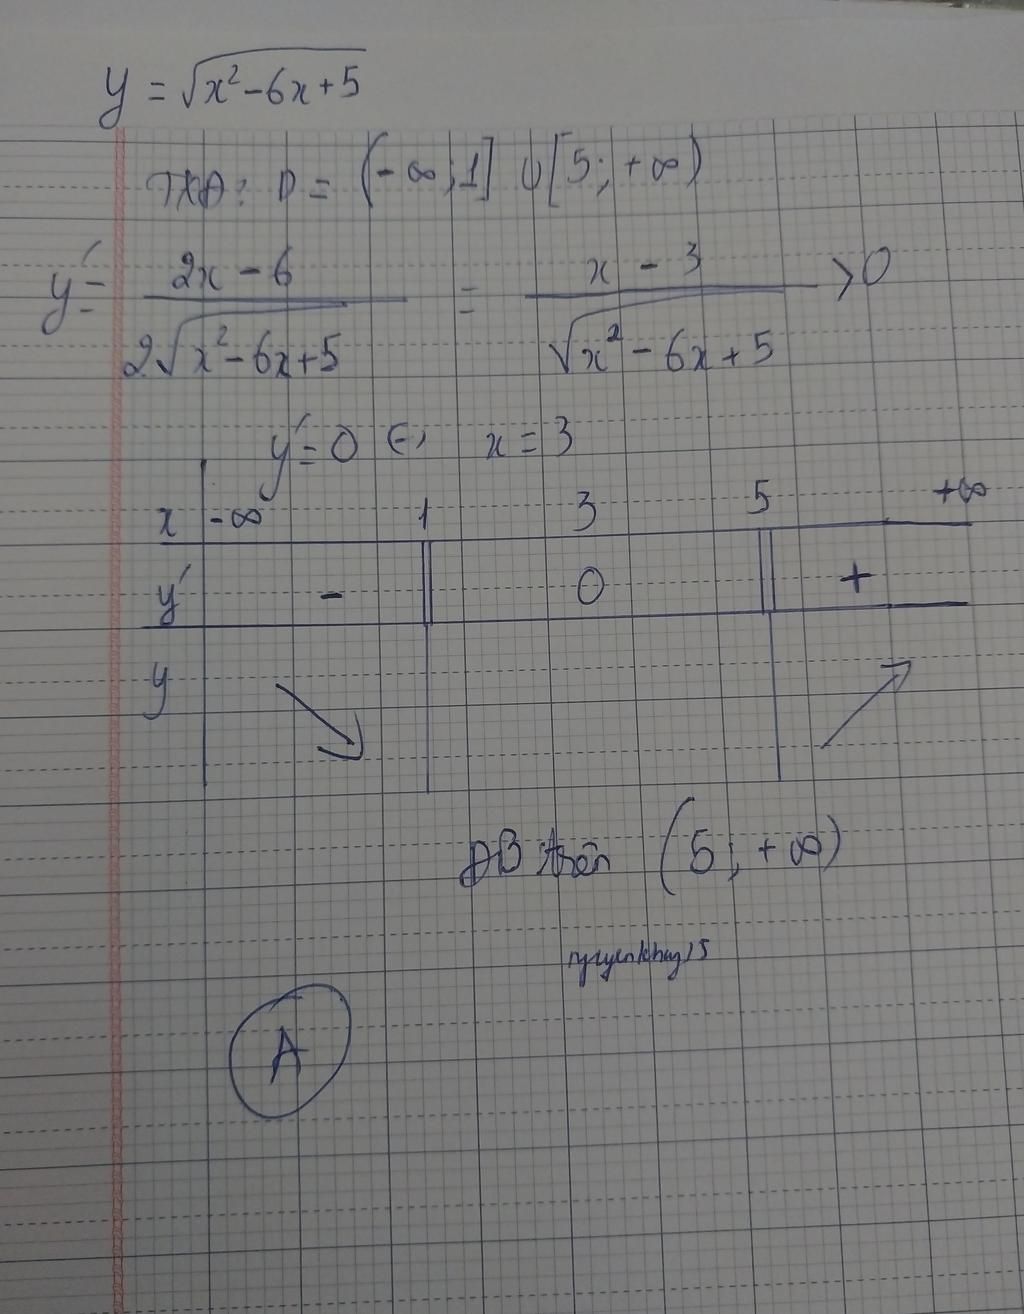 y = √(x² - 6x + 5)
TXĐ: D = (-∞; 1] ∪ [5; +∞)
y' = (2x - 6) / (2√(x² - 6x + 5)) = (x - 3) / (√(x² - 6x + 5)) > 0
y' = 0 ⇔ x = 3
x -∞ 1 3 5 +∞
y' - || 0 || +
y ↘ ↗
ĐB trên (5; +∞)
nguyenkhay15
A